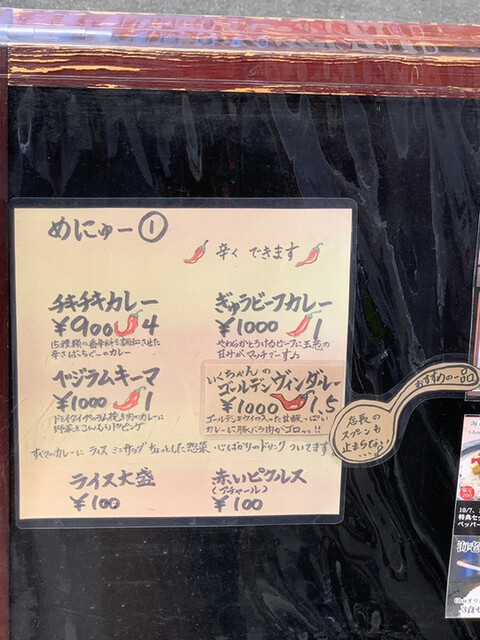 めにゅー①
辛く できます
チキチキカレー
¥900 4
15種類の香辛料を調和させた
辛さばっちぐーのカレー
ぎゅうビーフカレー
¥1000 1
やわらかとろけるビーフに玉葱の
甘みがマッチでーす♪
ベジラムキーマ
¥1000 1
ドライタイプのラム挽き肉のカレーに
野菜をこんもりトッピング
いくちゃんの
ゴールデンヴィンダルー
¥1000 1.5
ゴールデンキウイの入った甘酸っぱい
カレーに豚バラ肉がゴロッ!!
おすすめの一品
店長の
スプーンも
止まらない
すべてのカレーに ライス ミニサラダ ちょっとした惣菜 心ばかりのドリンク ついてます
ライス大盛
¥100
赤いピクルス
(アチャール)
¥100
10/7、
特典セッ
ペッパー
海老
3食セ